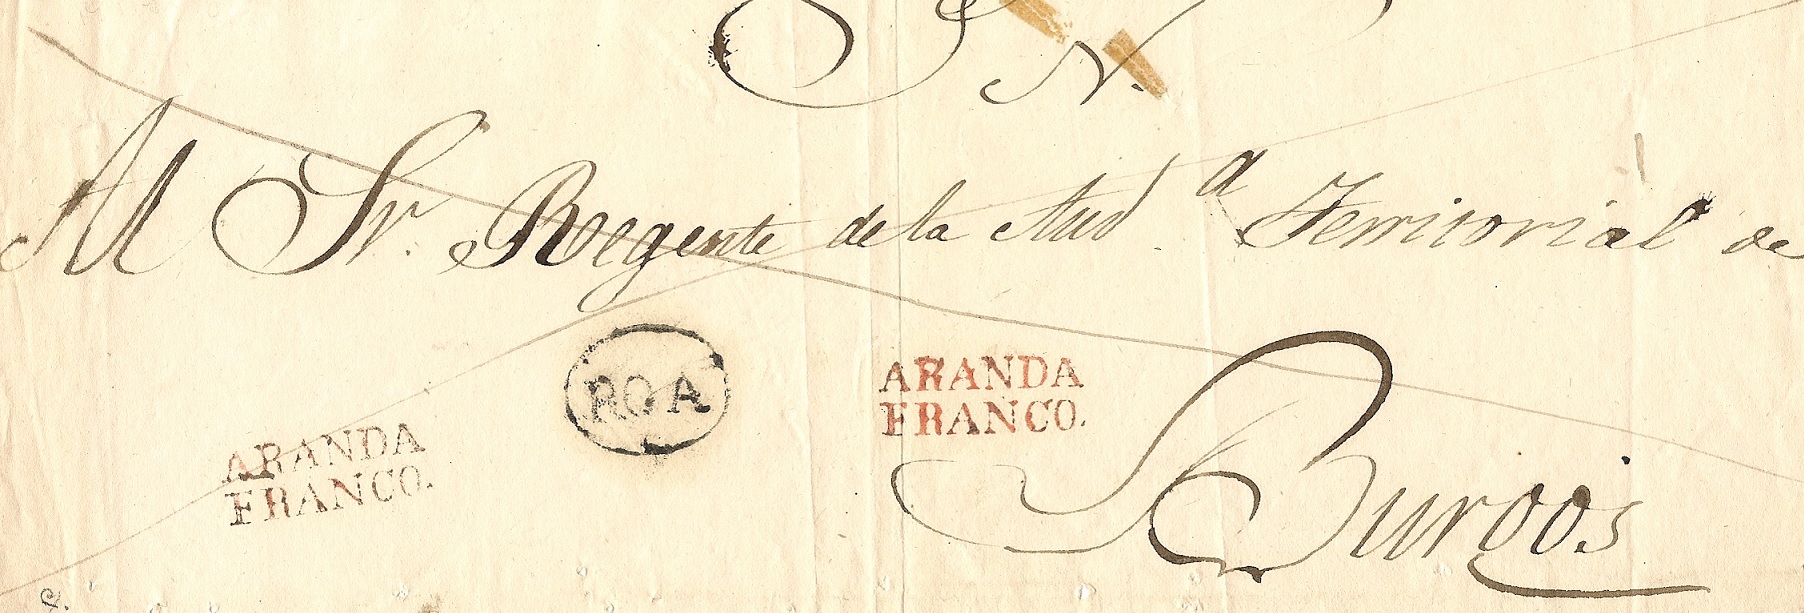 S. N.
Al Sr. Regente de la Aud.a Territorial de
Burgos
ROA
ARANDA
FRANCO.
ARANDA
FRANCO.